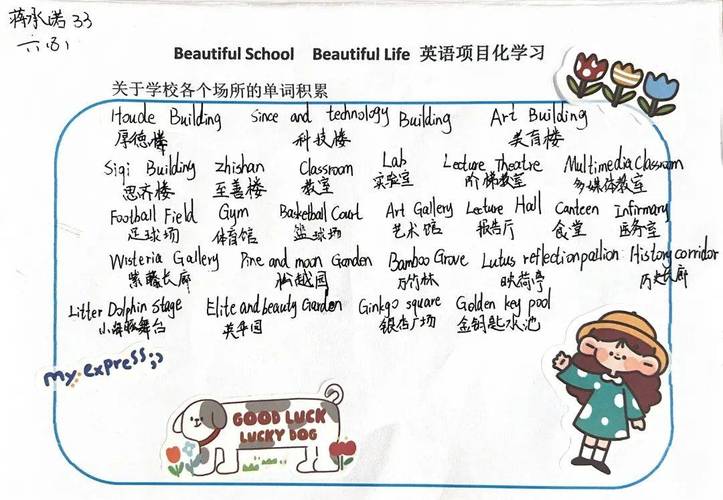 蒋承诺 33
六(3)
Beautiful School Beautiful Life 英语项目化学习
关于学校各个场所的单词积累
Houde Building Since and technology Building Art Building
厚德楼 科技楼 美育楼
Siqi Building Zhishan Classroom Lab Lecture Theatre Multimedia Classroom
思齐楼 至善楼 教室 实验室 阶梯教室 多媒体教室
Football Field Gym Basketball Court Art Gallery Lecture Hall Canteen Infirmary
足球场 体育馆 篮球场 艺术馆 报告厅 食堂 医务室
Wisteria Gallery Pine and moon Garden Bamboo Grove Lutus reflection History corridor
紫藤长廊 松越园 竹林 映荷亭 历史长廊
Litter Dolphin Stage Elite and beauty Garden Ginkgo square Golden key pool
小海豚舞台 英华园 银杏广场 金钥匙水池
my express
GOOD LUCK
LUCKY DOG